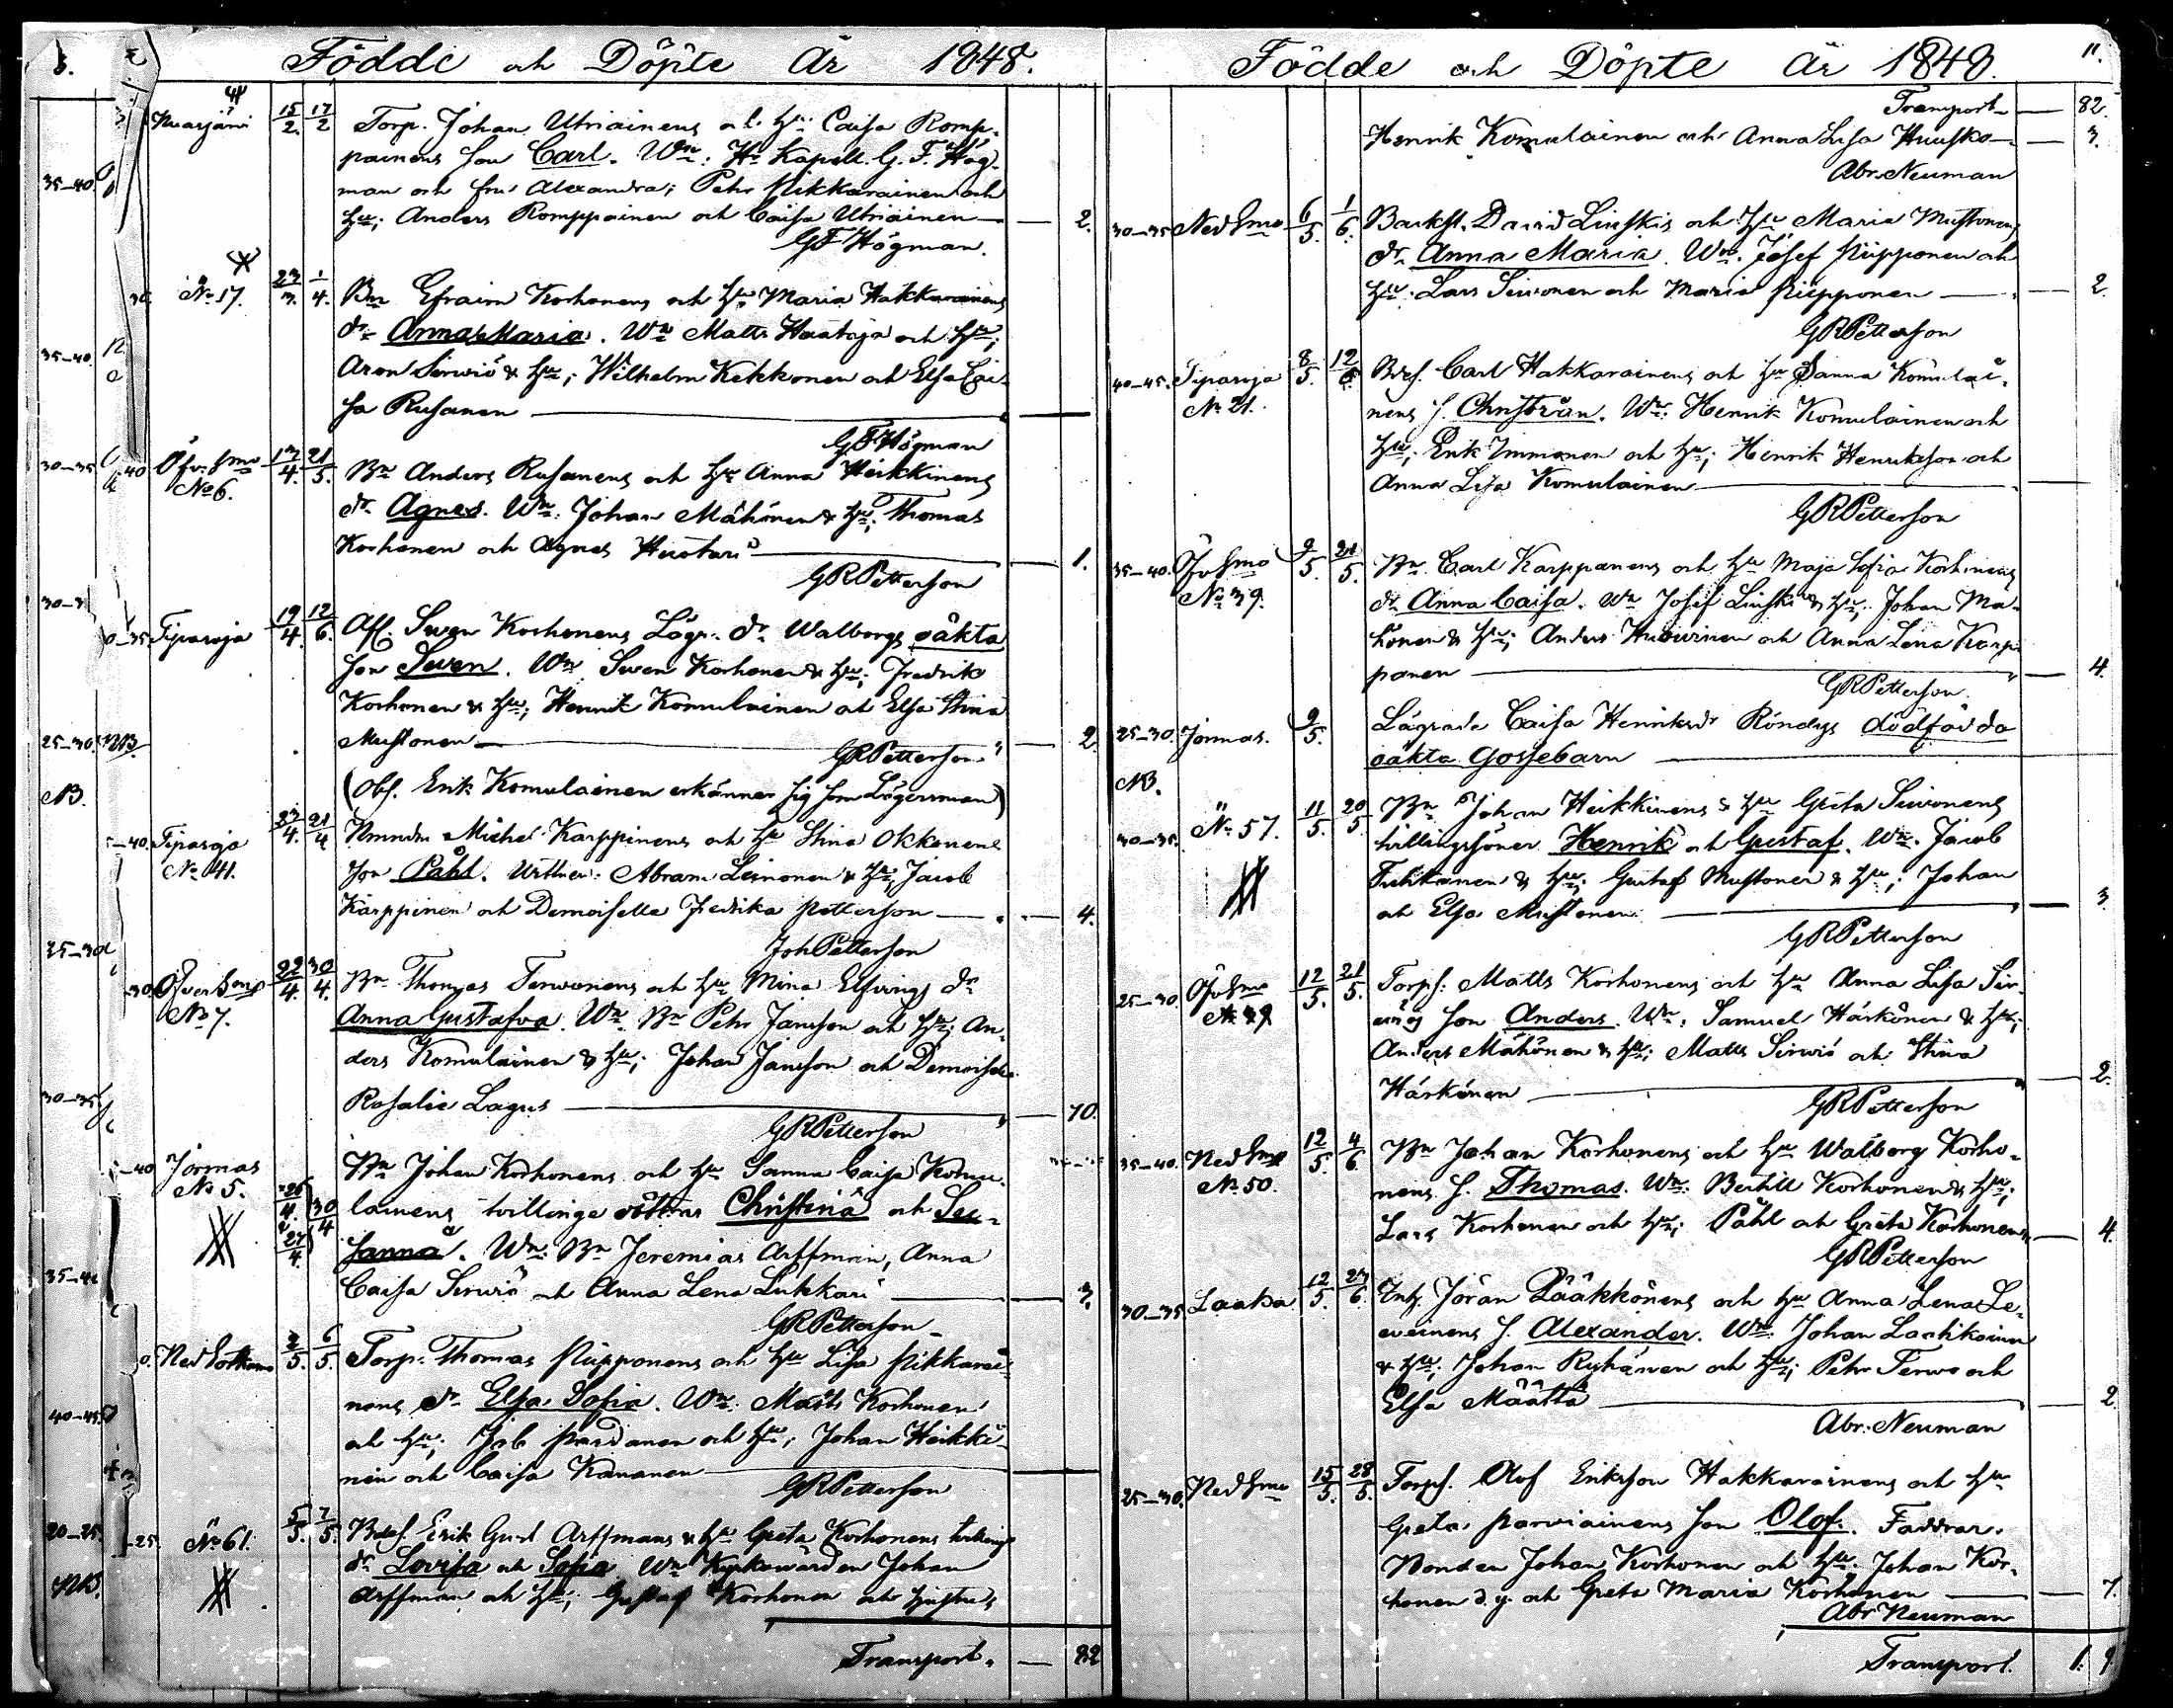 Födde och Döpte År 1848.
Kuarjäwi 15/2. 17/2 Torp. Johan Utriainens och hu: Caisa Romp-
painens son Carl. Wn: Hr Kapell. G. F. Hög-
man och fru Alexandra; Petr Pikkarainen och
hu; Anders Romppainen och Caisa Utriainen — 2.
GF Högman.
No 17. 23/3. 1/4. Bn Efraim Korhonens och hu Maria Hakkarainens
dr Anna Maria. Wn Matts Haataja och hu;
Aron Serwiö & hu; Wilhelm Kekkonen och Elsa Cai-
sa Rusanen —
GF Högman
Öfv. Smo No 6. 13/4. 21/5. Bn Anders Rusanens och hu Anna Heikkinens
dr Agnes. Wn: Johan Mähönen & hu; Thomas
Korhonen och Agnes Huotari — 1.
GRPetterson
Tiparoja 19/4. 12/6. Afl. Swen Korhonens Lögr. dr Walborgs oäkta
son Swen. Wn Swen Korhonen & hu; Fredrik
Korhonen & hu; Henrik Komulainen och Elsa Stina
Mustonen — 2.
GRPetterson
(Obs. Erik Komulainen erkänner sig som Lägersman)
Tiparoja No 41. 23/4. 21/4 Nmndm Michel Karppinens och hu Stina Okkonens
son Påhl. Wittnen: Abram Leinonen & hu; Jacob
Karppinen och Demoiselle Fredrika Petterson — 4.
Joh Petterson
Öfver Smo No 7. 22/4. 30/4. Bn Thomas Terwonens och hu Mina Elfvings dr
Anna Gustafva. Wn. Bn Petr Jansson och hu; An-
ders Komulainen & hu; Johan Jansson och Demoiselle
Rosalie Lagus — 10.
GRPetterson
Jormas No 5. 26/4. & 27/4. 30/4 Bn Johan Korhonens och hu Sanna Caisa Komu-
lainens tvillinge döttrar Christina och Su-
sanna. Wn: Bn Jeremias Arffman, Anna
Caisa Serwiö och Anna Lena Lukkari — 3.
GRPetterson
Ned Sotkamo 3/5. 6/5. Torp. Thomas Piipponens och hu Lisa Pikkarai-
nens dr Elsa Sofia. Wn. Matts Korhonen
och hu; Job Pardanen och hu; Johan Heikki-
nen och Caisa Kananen —
GRPetterson
No 61. 5/5. 7/5. Bdes. Erik Gust Arffmans & hu Greta Korhonens tvilling
dr Lovisa och Sofia Wn Kyrkowärden Johan
Arffman och hu; Gustaf Korhonen och hustru;
Transport. — 82
Födde och Döpte År 1848. 11.
Transport — 82.
Henrik Komulainen och Anna Lisa Huusko — 3.
Abr. Neuman
30-35 Ned Smo 6/5. 1/6. Backst. David Linskis och hu Maria Mustonens
dr Anna Maria. Wn. Josef Piipponen och
hu; Lars Sirwonen och Maria Piipponen — 2.
GRPetterson
40-45. Tiparoja No 21. 8/5. 12/6. Bdes. Carl Hakkarainens och hu Sanna Komulai-
nens s. Christian. Wn: Henrik Komulainen och
hu; Erik Immonen och hu; Henrik Henriksson och
Anna Lisa Komulainen —
GRPetterson
35-40. Öfv Smo No 39. 9/5. 21/5. Bn Carl Karppanens och hu Maja Sofia Korhonens
dr Anna Caisa. Wn Josef Linski & hu; Johan Mä-
hönen & hu; Anders Huowinen och Anna Lena Karp-
panen — 4.
GRPetterson.
25-30. Jormas. 9/5. Lägrade Caisa Henriksdr Röndys dödfödda
NB. oäkta Gossebarn —
30-35. No 57. 11/5. 20/5 Bn Johan Heikkinens & hu Greta Sirwonens
tvillingsöner Henrik och Gustaf. Wn. Jacob
Tuhkanen & hu; Gustaf Mustonen & hu; Johan
och Elsa Mustonen. — 3.
GRPetterson
25-30 Öfv Smo No 49. 12/5. 21/5. Torps: Matts Korhonens och hu Anna Lisa Sir-
wiös son Anders. Wn. Samuel Härkönen & hu;
Anders Mähönen & hu; Matts Sirwiö och Stina
Härkönen — 2.
GRPetterson
35-40. Ned Smo No 50. 12/5. 4/6. Bn Johan Korhonens och hu Walborg Korho-
nens s. Thomas. Wn: Bertill Korhonen & hu;
Lars Korhonen och hu; Påhl och Greta Korhonen — 4.
GRPetterson
30-35. Laaka 12/5. 23/6. Inh. Jöran Pääkkönens och hu Anna Lena Le-
weinens s. Alexander. Wn. Johan Laatikainen
& hu; Johan Ryhänen och hu; Petr Terwo och
Elsa Määttä — 2.
Abr. Neuman
25-30. Ned Smo 15/5. 28/5. Torps. Olof Eriksson Hakkarainens och hu
Greta Parviainens son Olof. Faddrar.
Bonden Johan Korhonen och hu; Johan Kor-
honen d.y. och Greta Maria Korhonen — 7.
Abr Neuman
Transport. 1. 9.